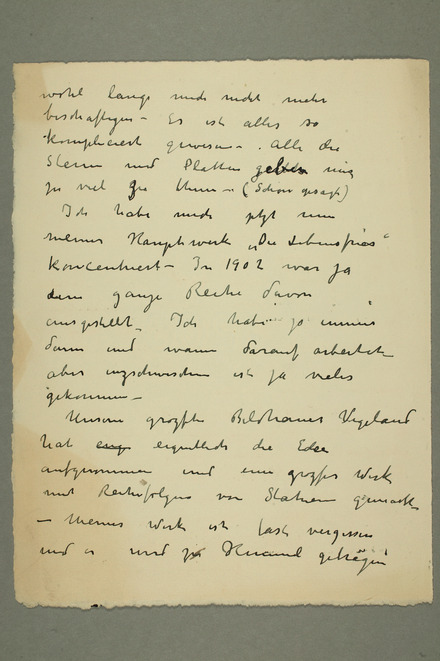 wohl lange mich nicht mehr
beschäftigen – Es ist alles so
kompliciert gewesen – . Alle die
Steine und Platten geben mir
zu viel zu thun – (Schon gesagt)
Ich habe mich jetzt um
meines Hauptwerk „Die Lebensfries“
koncentriert – In 1902 war ja
ganze Reihe davon
ausgestellt – Ich habe ja immer
dann und wann darauf arbeitet
aber inzschwischen ist ja vieles
gekommen –
Unsern grozften Bildhauer Vigeland
hat eigentlich die Edee
aufgenommen und ein grozfes Werk
mit Reihefolgen von Statuen gemacht
– Meines Werk ist fast vergessen
und es wird ja Niemand